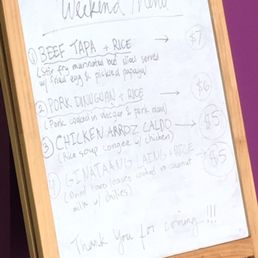 Weekend Menu
① BEEF TAPA + RICE → $7
(Stir fry marinated beef slices served
w/ fried egg & pickled papaya)
② PORK DINUGUAN + RICE → $6
(Pork cooked in vinegar & pork blood)
③ CHICKEN ARROZ CALDO → $5
(Rice soup congee w/ chicken)
④ GINATAANG LAING + RICE → $5
(Dried taro leaves cooked in coconut
milk w/ chilies)
Thank You for coming...!!!